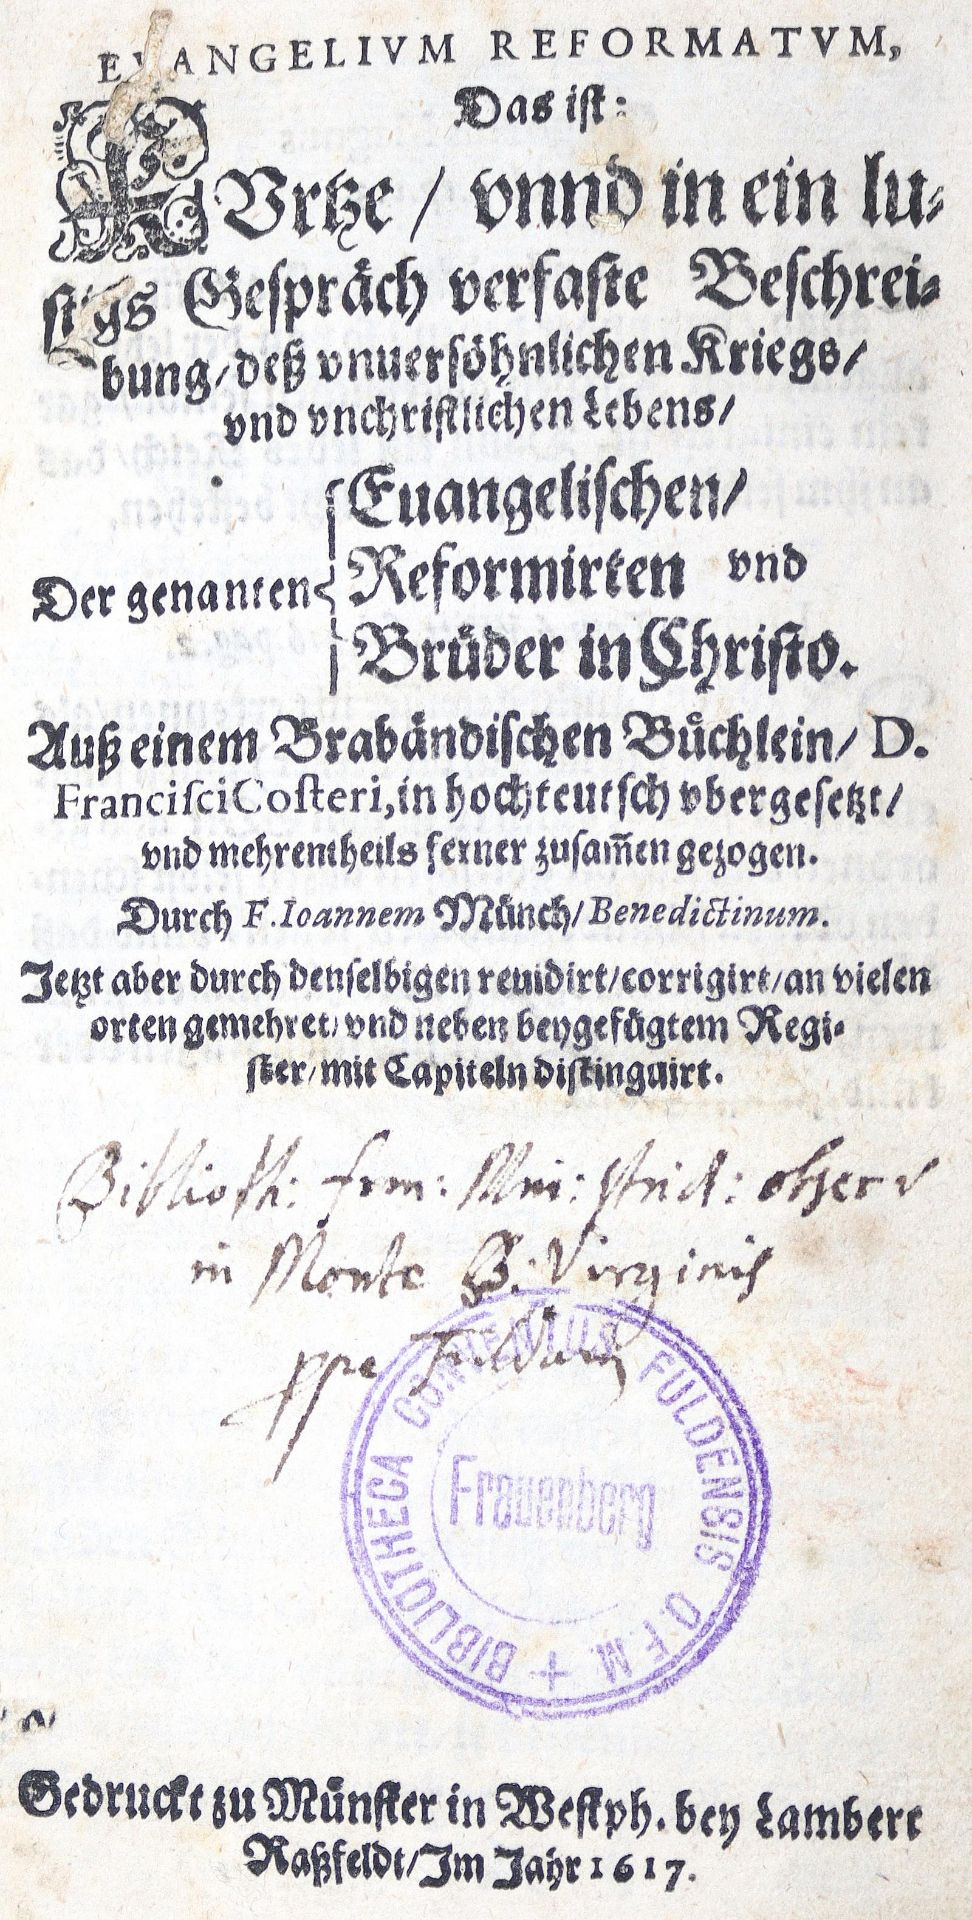 EVANGELIVM REFORMATVM,
Das ist:
KVrtze / vnnd in ein lu-
stigs Gespräch verfaste Beschrei-
bung/ deß vnuersöhnlichen Kriegs/
vnd vnchristlichen Lebens/
Euangelischen/
Der genanten Reformirten vnd
Brüder in Christo.
Auß einem Brabändischen Büchlein/ D.
Francisci Costeri, in hochteutsch vbergesetzt/
vnd mehrentheils ferner zusam̃en gezogen.
Durch F. Ioannem Münch/ Benedictinum.
Jetzt aber durch denselbigen reuidirt/ corrigirt/ an vielen
orten gemehret/ vnd neben beygefügtem Regi-
ster/ mit Capiteln distinguirt.
Biblioth: frm: Min: strict: obser
in Monte B: Virginis
ppe Fuldam
BIBLIOTHECA CONVENTUS FULDENSIS O.F.M. +
Frauenberg
Gedruckt zu Münster in Westph. bey Lambert
Raßfeldt/ Im Jahr 1617.